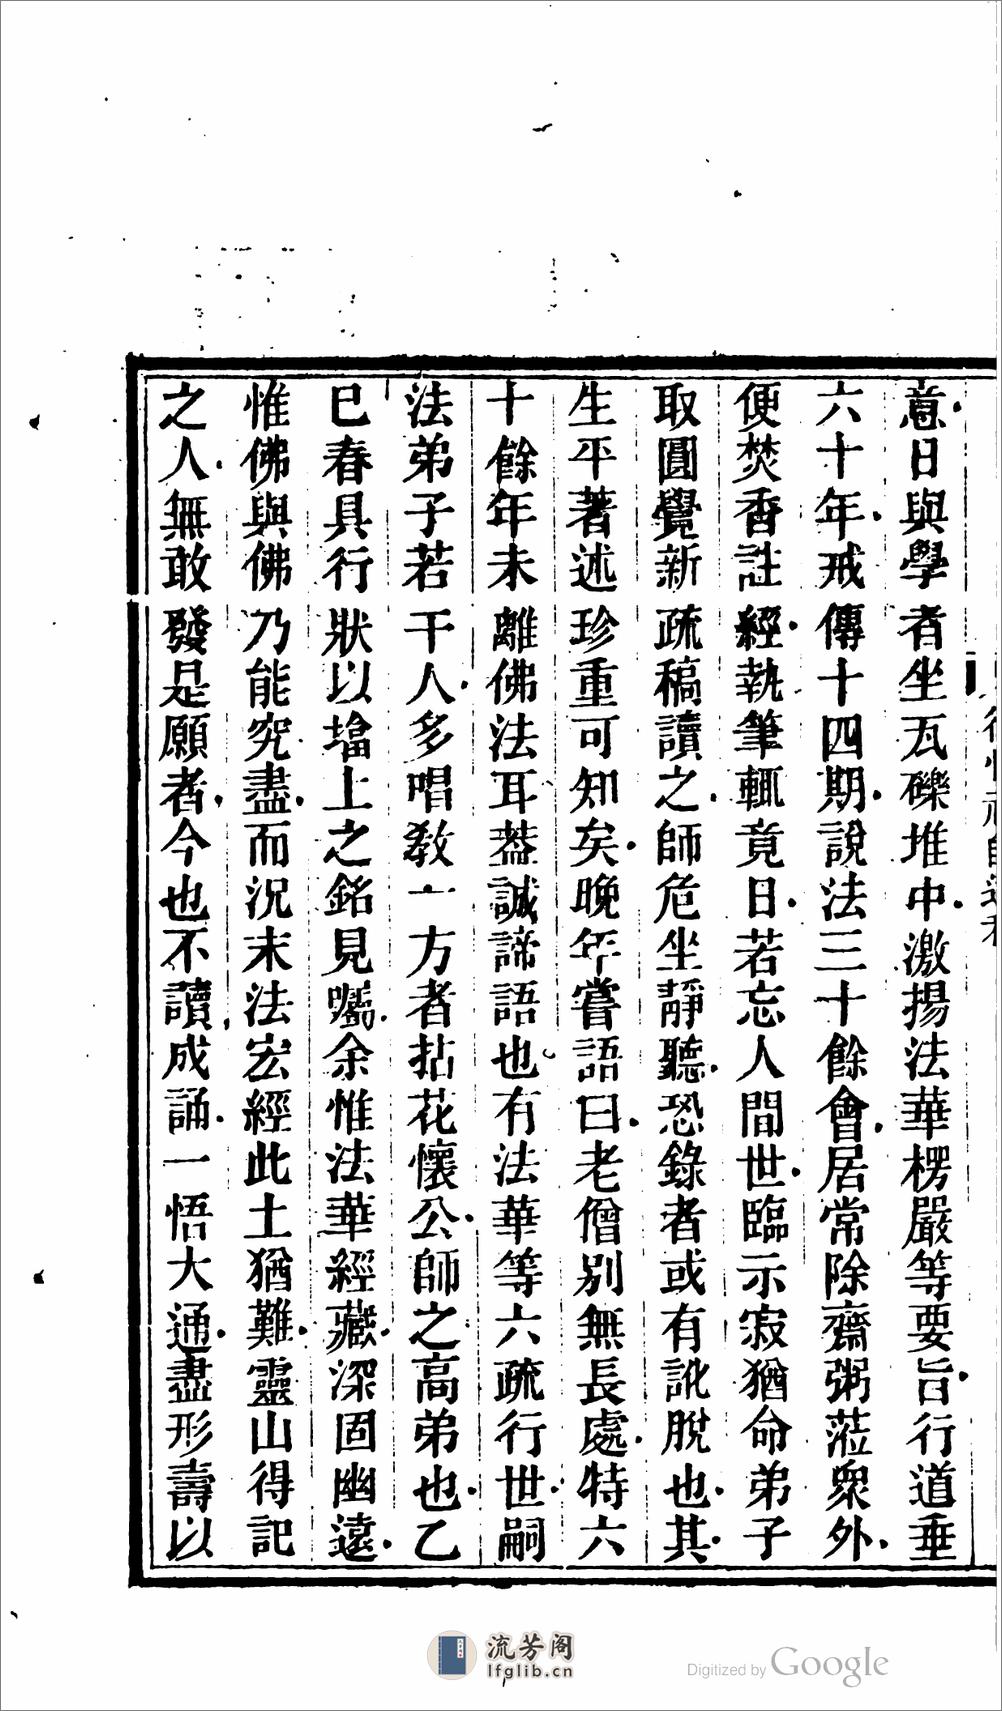 意日與學者坐瓦礫堆中激揚法華楞嚴等要旨行道垂
六十年戒傳十四期說法三十餘會居常除齋粥蒞衆外
便焚香註經執筆輒竟日若忘人間世臨示寂猶命弟子
取圓覺新疏稿讀之師危坐靜聽恐錄者或有訛脫也其
生平著述珍重可知矣晚年嘗語曰老僧別無長處特六
十餘年未離佛法耳葢誠諦語也有法華等六疏行世嗣
法弟子若干人多唱教一方者拈花懷公師之高弟也乙
巳春具行狀以墖上之銘見囑余惟法華經藏深固幽遠
惟佛與佛乃能究盡而況末法宏經此土猶難靈山得記
之人無敢發是願者今也不讀成誦一悟大通盡形壽以
流芳阁
lfglib.cn
Digitized by Google